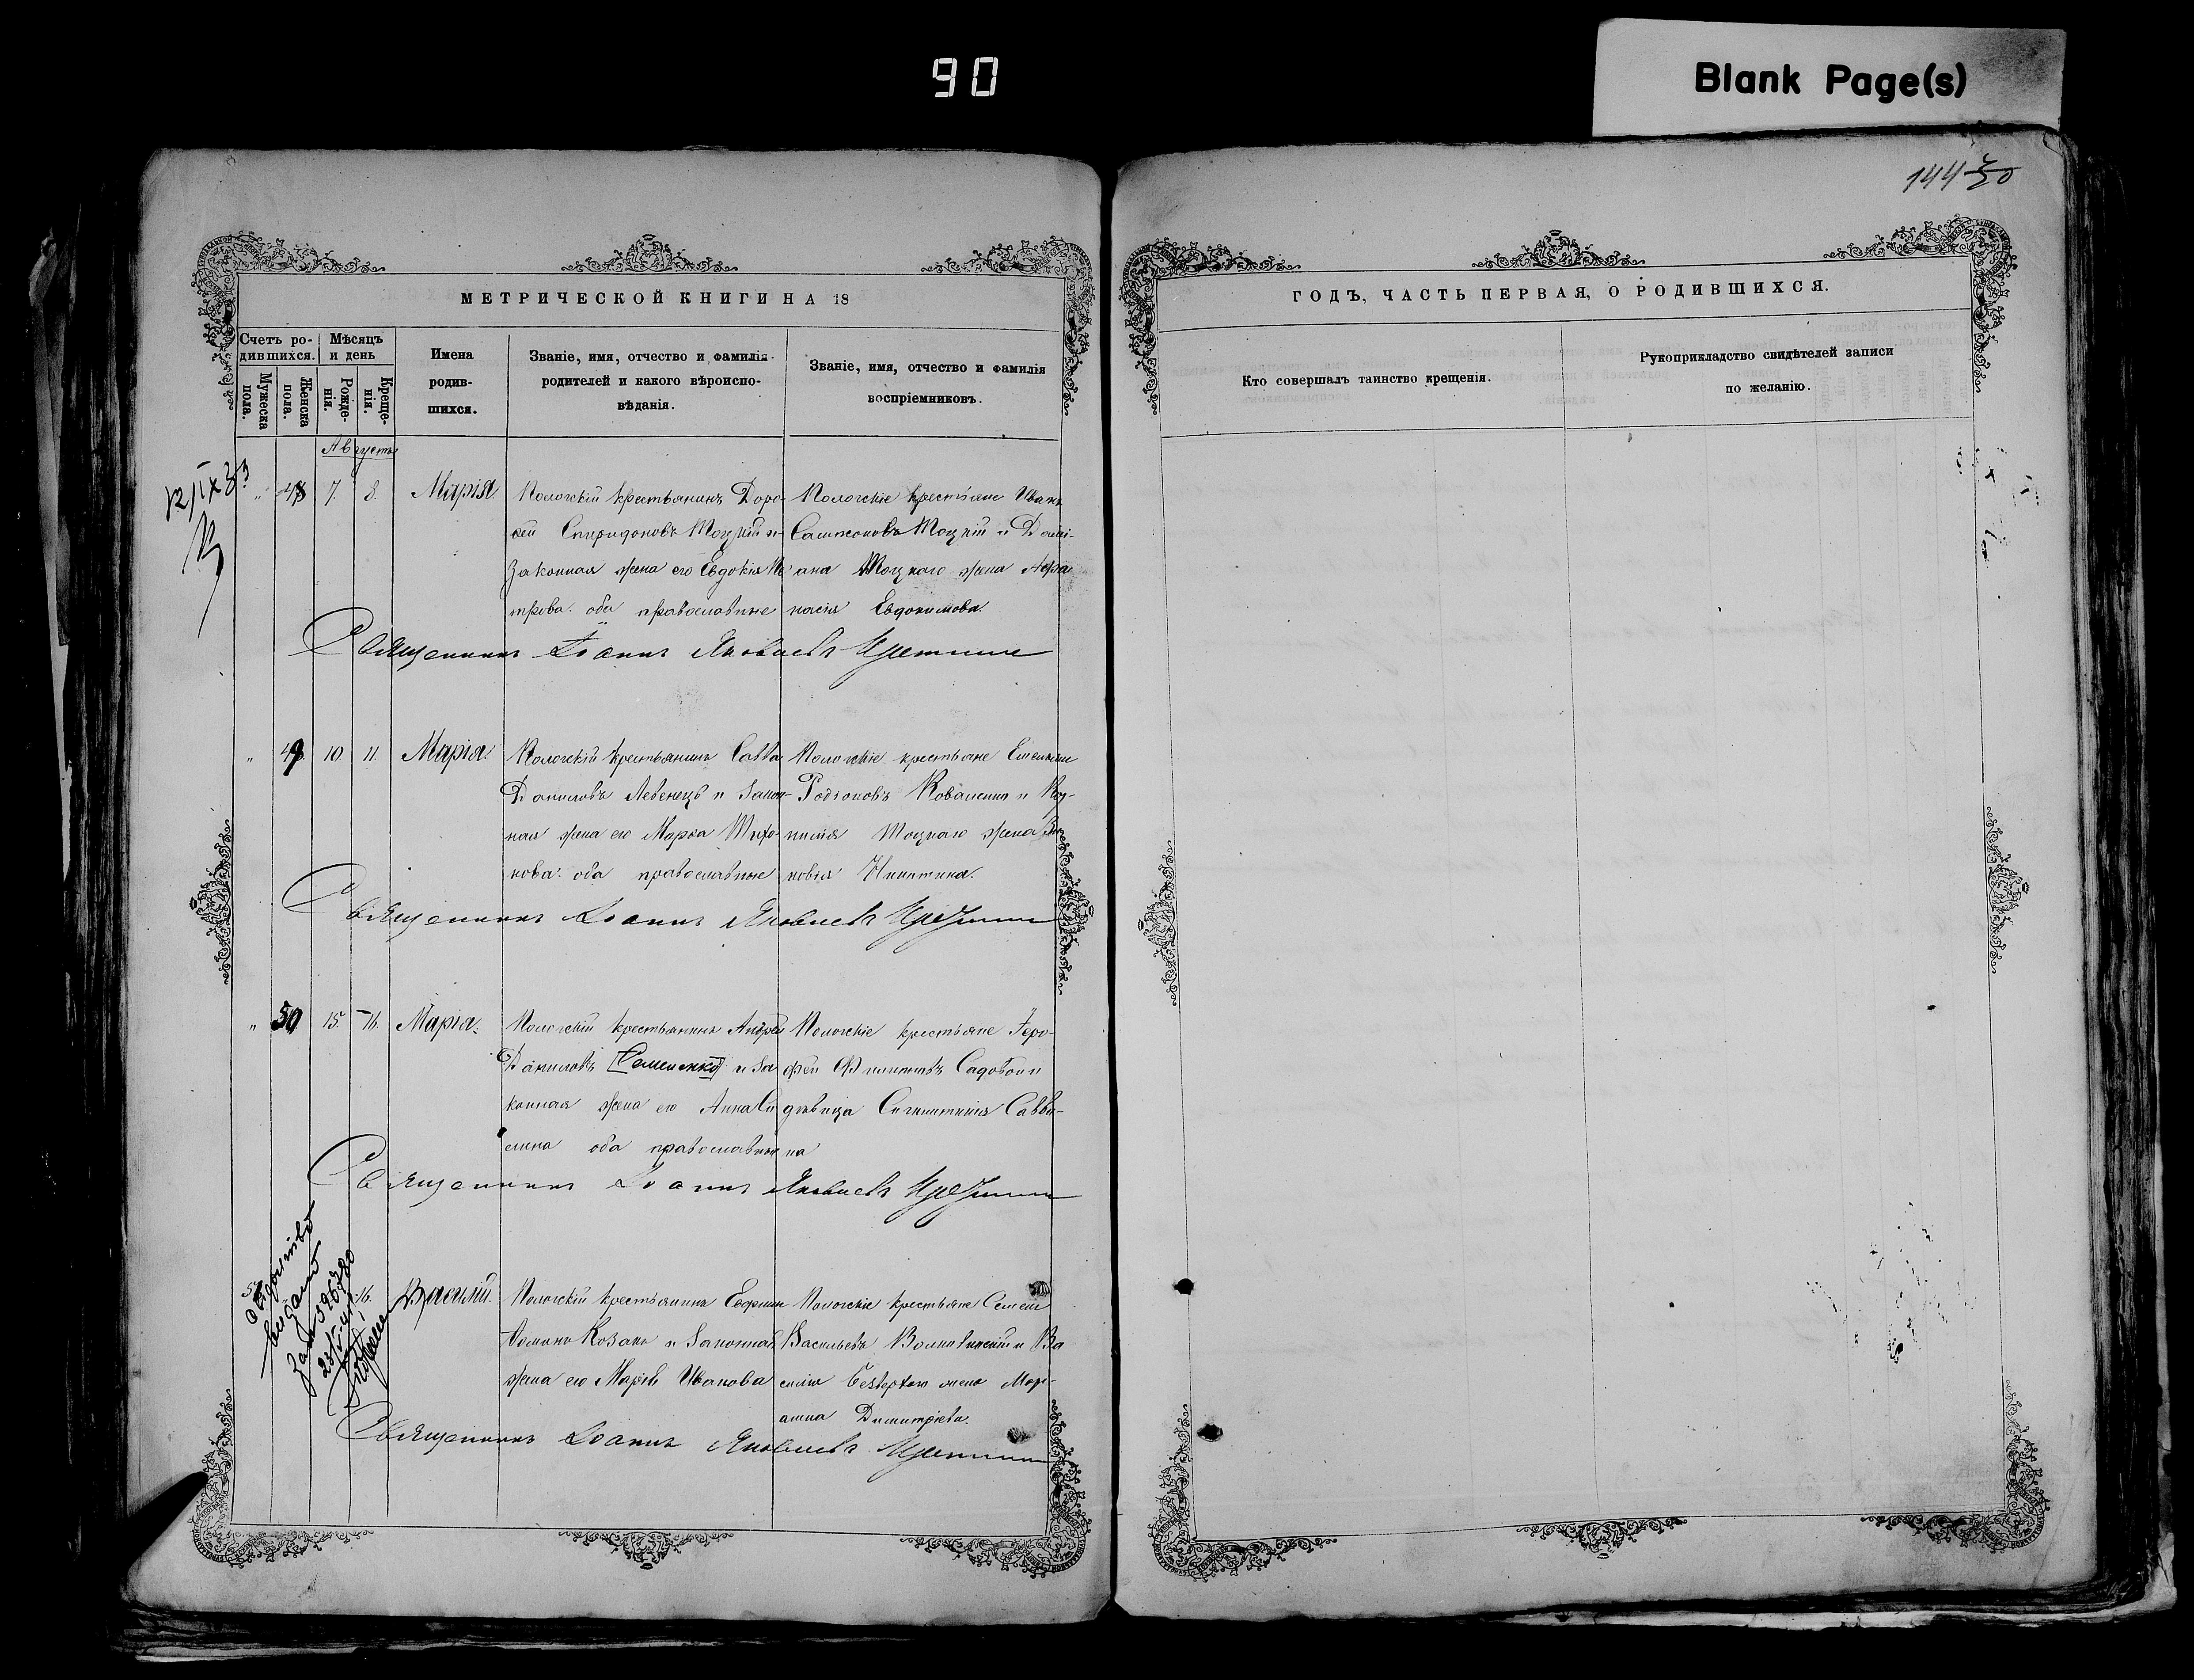 90
Blank Page(s)
144 50
МЕТРИЧЕСКОЙ КНИГИ НА 18
Счетъ ро-
дившихся.
Мѣсяцъ
и день
Мужеска
пола.
Женска
пола.
Рожде-
нія.
Креще-
нія.
Имена
родив-
шихся.
Званіе, имя, отчество и фамилія
родителей и какого вѣроиспо-
вѣданія.
Званіе, имя, отчество и фамилія
воспріемниковъ.
Августъ
12/IX 33
" 48 7. 8. Марія.
Пологскій крестьянинъ Доро-
ѳей Спиридоновъ Тоцкій и
законная жена его Евдокія Пе
трова. оба православные
Пологскіе крестьяне Иванъ
Сампсоновъ Тоцкій и Дамі-
ана Тоцкаго жена Афа
насія Евдокимова.
Священникъ Іоаннъ Яковлевъ
" 49 10 11. Марія.
Пологскій крестьянинъ Савва
Даниловъ Левенецъ и закон-
ная жена его Марѳа Тихо-
нова. оба православные
Пологскіе крестьяне Емельян
Родіоновъ Коваленко и
Тоцкаго жена
Никитина.
Священникъ Іоаннъ Яковлевъ
" 50 15. 16. Марія.
Пологскій крестьянинъ Андрей
Даниловъ [Семненко] и за
конная жена его Анна
оба православные
Пологскіе крестьяне Геро-
фей Филипповъ Садовой и
дѣвица Сигклитикія Савви-
на
Священникъ Іоаннъ Яковлевъ
16. Василій.
Свидоцтво
видано
23/V-41
Пологскій крестьянинъ
Козакъ и законная
жена его Марія Иванова
Пологскіе крестьяне Семен
Васильевъ и Ва
силія Безверхаго жена Мар-
Димитріева.
Священникъ Іоаннъ Яковлевъ
ГОДЪ, ЧАСТЬ ПЕРВАЯ, О РОДИВШИХСЯ.
Кто совершалъ таинство крещенія.
Рукоприкладство свидѣтелей записи
по желанію.